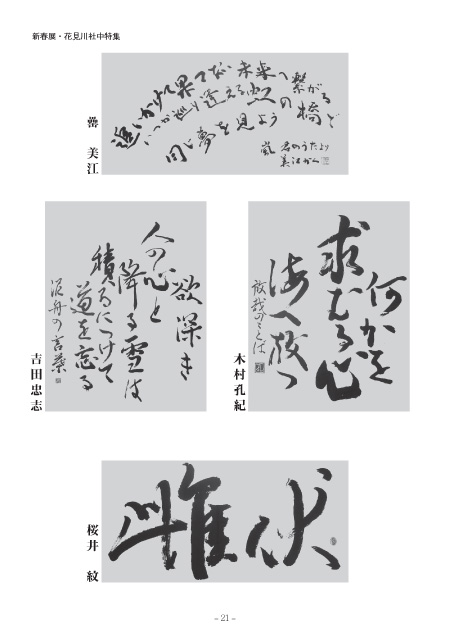 新春展・花見川社中特集
追いかけて果てない未来へ繋がる
いつか巡り逢える虹の橋で
同じ夢を見よう
嵐 君のうたより
美江かく
美江
何かを
求むる心
海へ放つ
放哉のことは
木村孔紀
欲深き
人の心と
降る雪は
積るにつけて
道を忘る
泥舟の言葉
吉田忠志
雌伏
桜井 紋
– 21 –